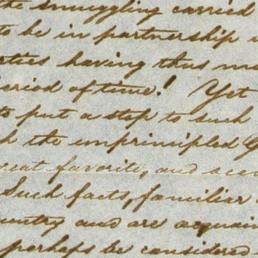 the smuggling carried
to be in partnership
rties having thus ma
eriod of time! Yet
to put a stop to such
d the unprincipled
reat favorite, and
Such facts, familiar
untry and are acquain
perhaps be considered